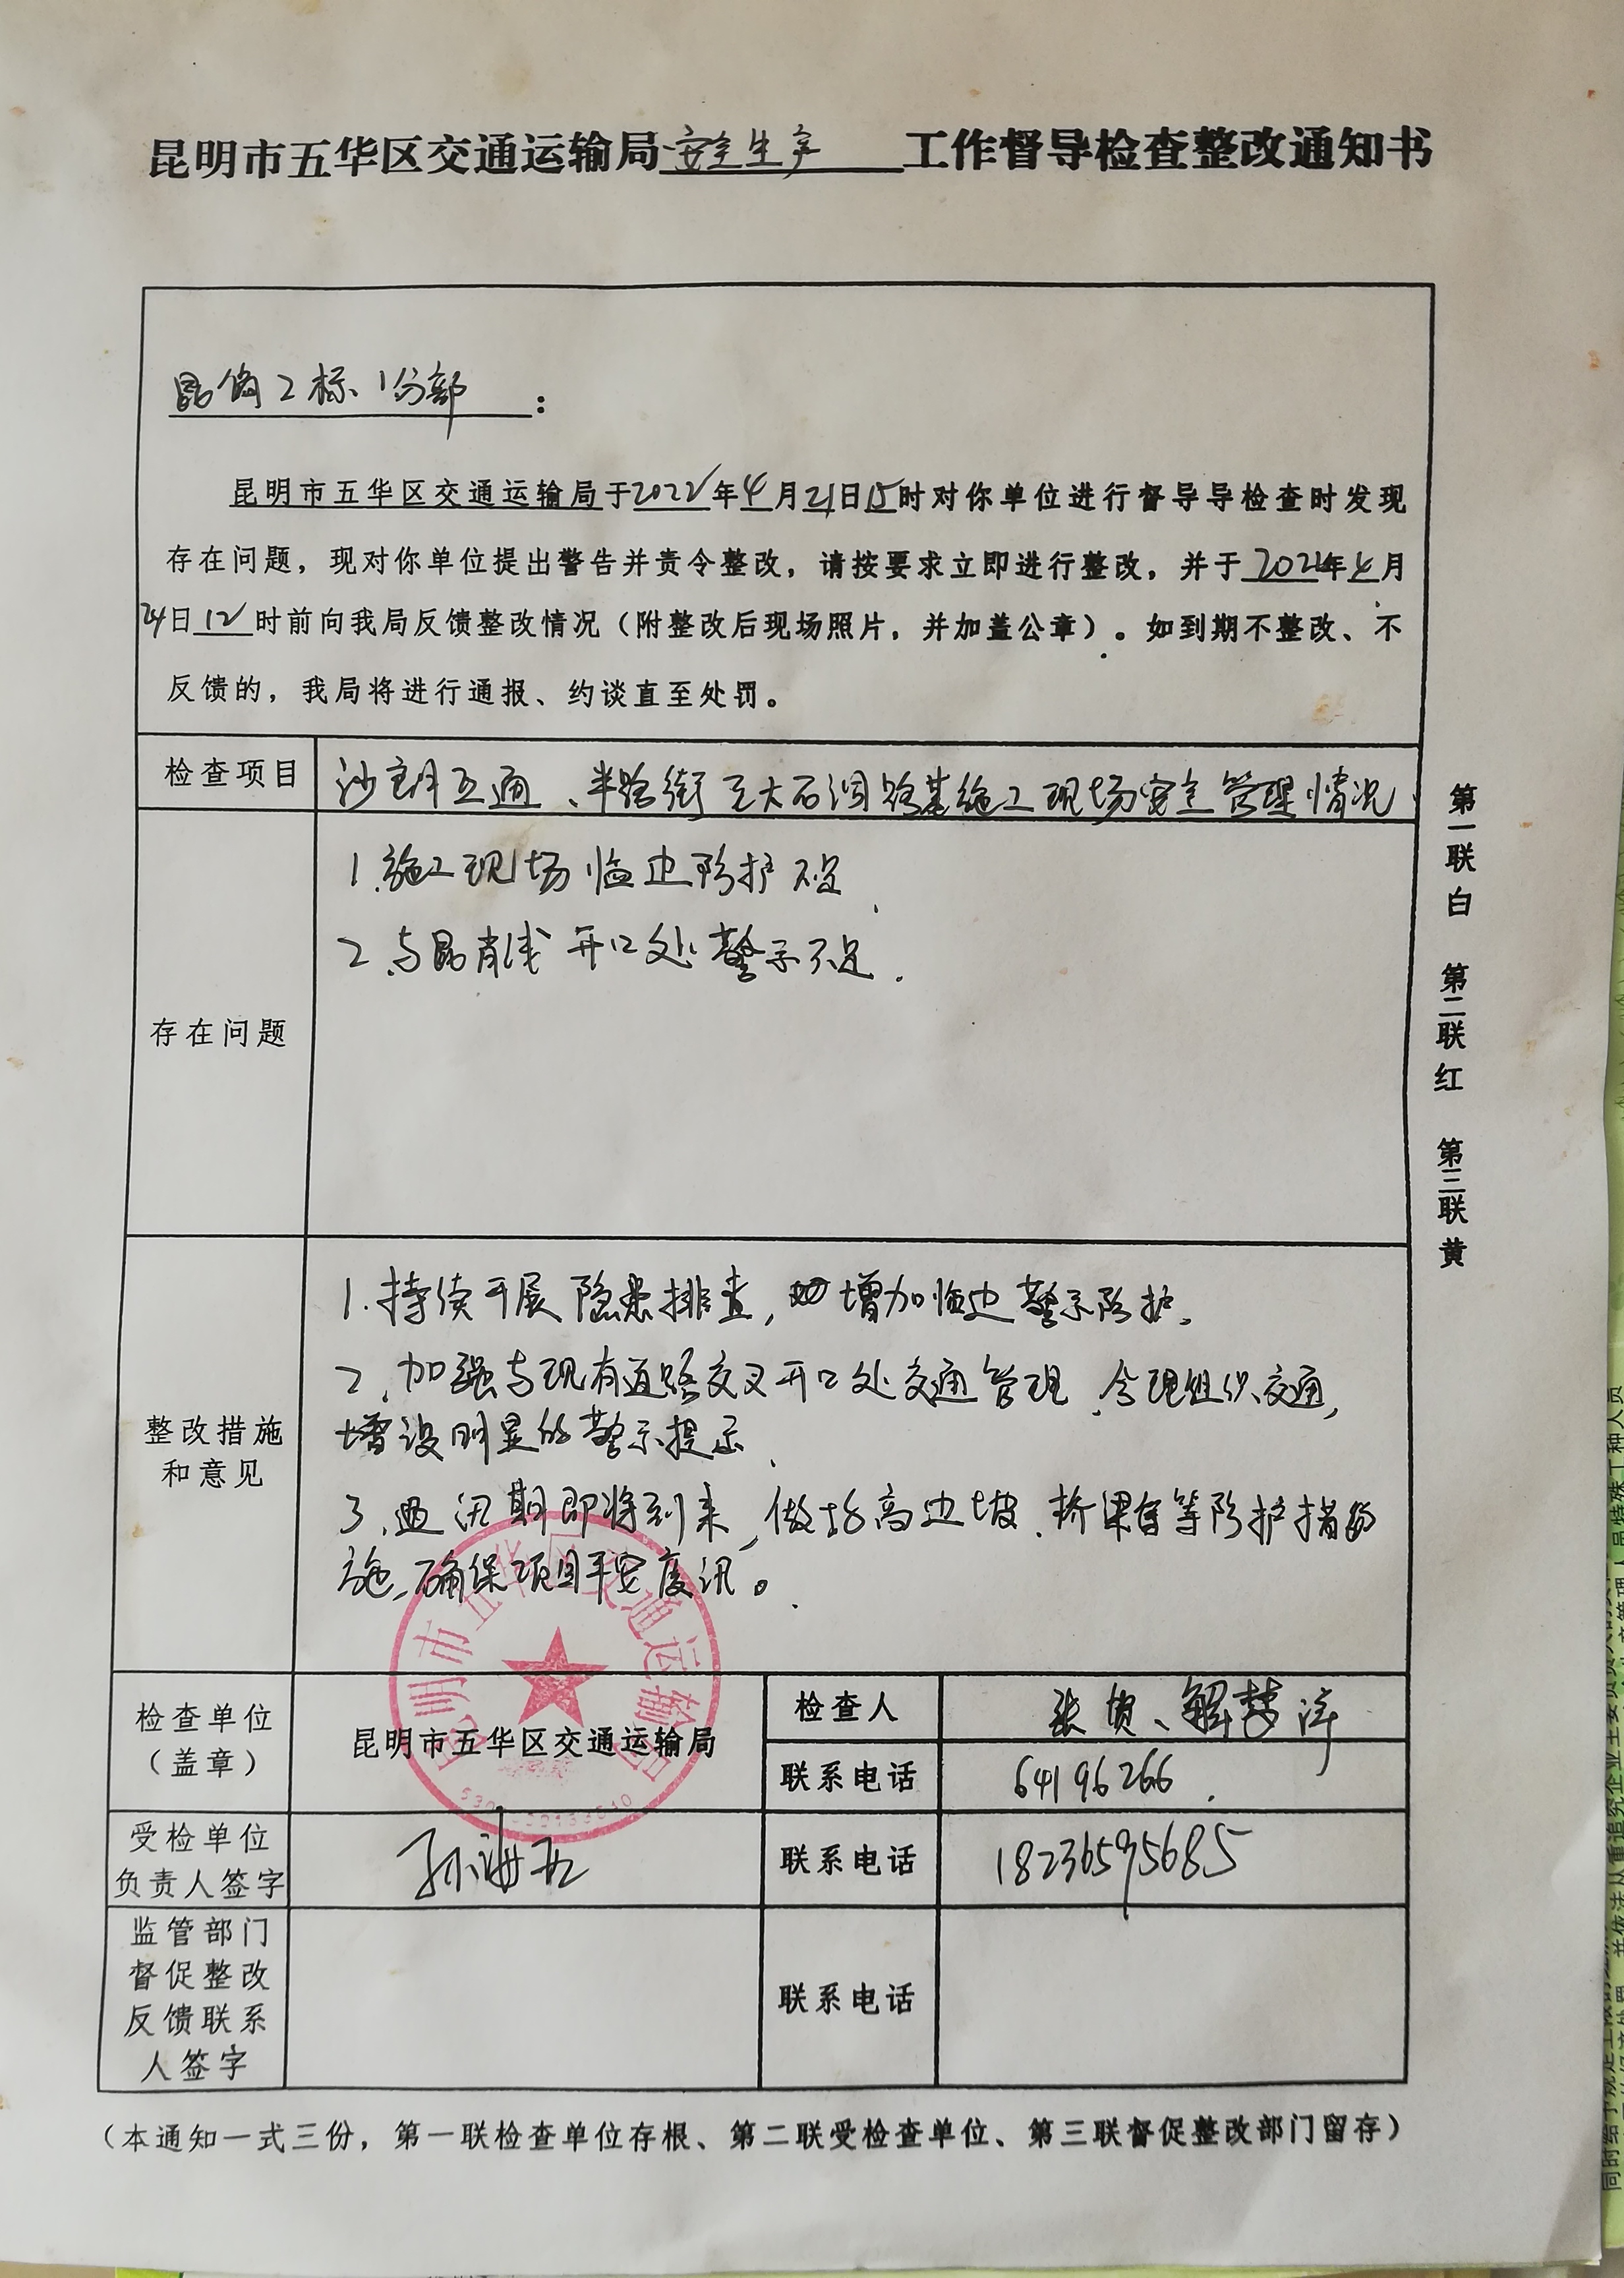 昆明市五华区交通运输局安全生产工作督导检查整改通知书
昆倘2标1分部:
昆明市五华区交通运输局于2022年4月21日15时对你单位进行督导导检查时发现
存在问题，现对你单位提出警告并责令整改，请按要求立即进行整改，并于2022年4月
24日12时前向我局反馈整改情况（附整改后现场照片，并加盖公章）。如到期不整改、不
反馈的，我局将进行通报、约谈直至处罚。
检查项目 沙朗互通、半路街至大石洞路基施工现场安全管理情况
存在问题
1.施工现场临边防护不足
2.与昆肖线开口处警示不足.
整改措施
和意见
1.持续开展隐患排查,增加临边警示防护。
2.加强与现有道路交叉开口处交通管理.合理组织交通,
增设明显的警示提示.
3.汛期即将到来,做好高边坡.桥梁等防护措
施,确保项目平安度汛。
检查单位
（盖章）
昆明市五华区交通运输局
检查人 张 、解梦洋
联系电话 64196266.
受检单位
负责人签字
孙海
联系电话 18236595685
监管部门
督促整改
反馈联系
人签字
联系电话
（本通知一式三份，第一联检查单位存根、第二联受检查单位、第三联督促整改部门留存）
第一联白 第二联红 第三联黄
昆明市五华区交通运输局